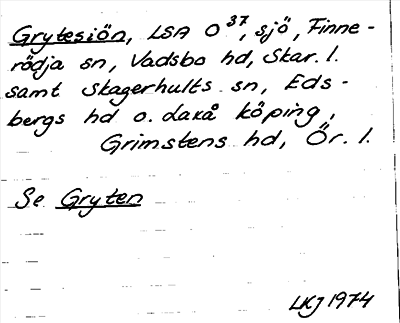 Grytesjön, LSA O³⁷, sjö, Finne-
rödja sn, Vadsbo hd, Skar. l.
samt Skagerhults sn, Eds-
bergs hd o. Laxå köping,
Grimstens hd, Ör. l.
Se Gryten
LKJ 1974